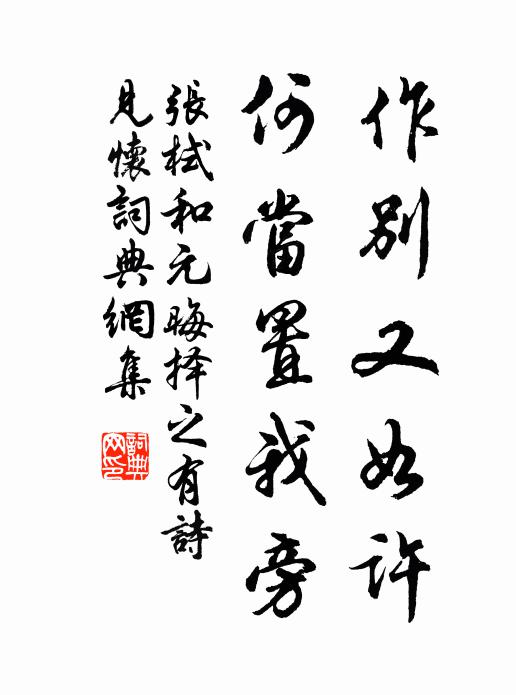 作別又如許
何當置我旁
張栻和元晦择之有詩
見懷詞典網集
詞典網印